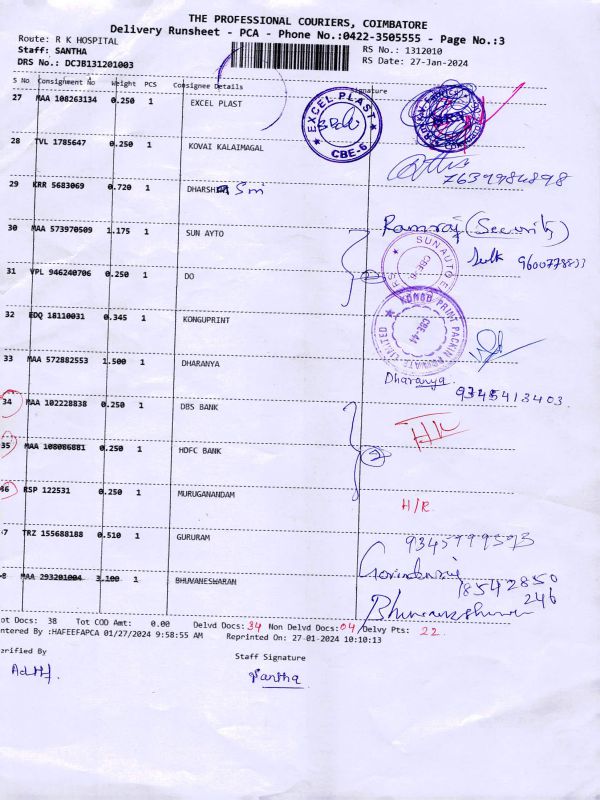 THE PROFESSIONAL COURIERS, COIMBATORE
Delivery Runsheet - PCA - Phone No.:0422-3505555 - Page No.:3
Route: R K HOSPITAL RS No.: 1312010
Staff: SANTHA RS Date: 27-Jan-2024
DRS No.: DCJB131201003
S No Consignment No Weight PCS Consignee Details Signature
27 MAA 108263134 0.250 1 EXCEL PLAST
★ EXCEL PLAST ★ CBE-6
28 TVL 1785647 0.250 1 KOVAI KALAIMAGAL
7639984898
29 KRR 5683069 0.720 1 DHARSH Smi
30 MAA 573970509 1.175 1 SUN AYTO Ramraj (Security)
SUN AUTO CBE-6
31 VPL 946240706 0.250 1 DO 2
32 EDQ 18110031 0.345 1 KONGUPRINT
PRINT PACKIN PRIVATE LIMITED CBE-44
33 MAA 572882553 1.500 1 DHARANYA Dharanya
9345413403
34 MAA 102228838 0.250 1 DBS BANK
35 MAA 108086881 0.250 1 HDFC BANK 2
46 RSP 122531 0.250 1 MURUGANANDAM H/R
7 TRZ 155688188 0.510 1 GURURAM
8 MAA 293201004 3.100 1 BHUVANESWARAN 18542850
246
ot Docs: 38 Tot COD Amt: 0.00 Delvd Docs: 34 Non Delvd Docs: 04 Delvy Pts: 22
ntered By :HAFEEFAPCA 01/27/2024 9:58:55 AM Reprinted On: 27-01-2024 10:10:13
erified By Staff Signature